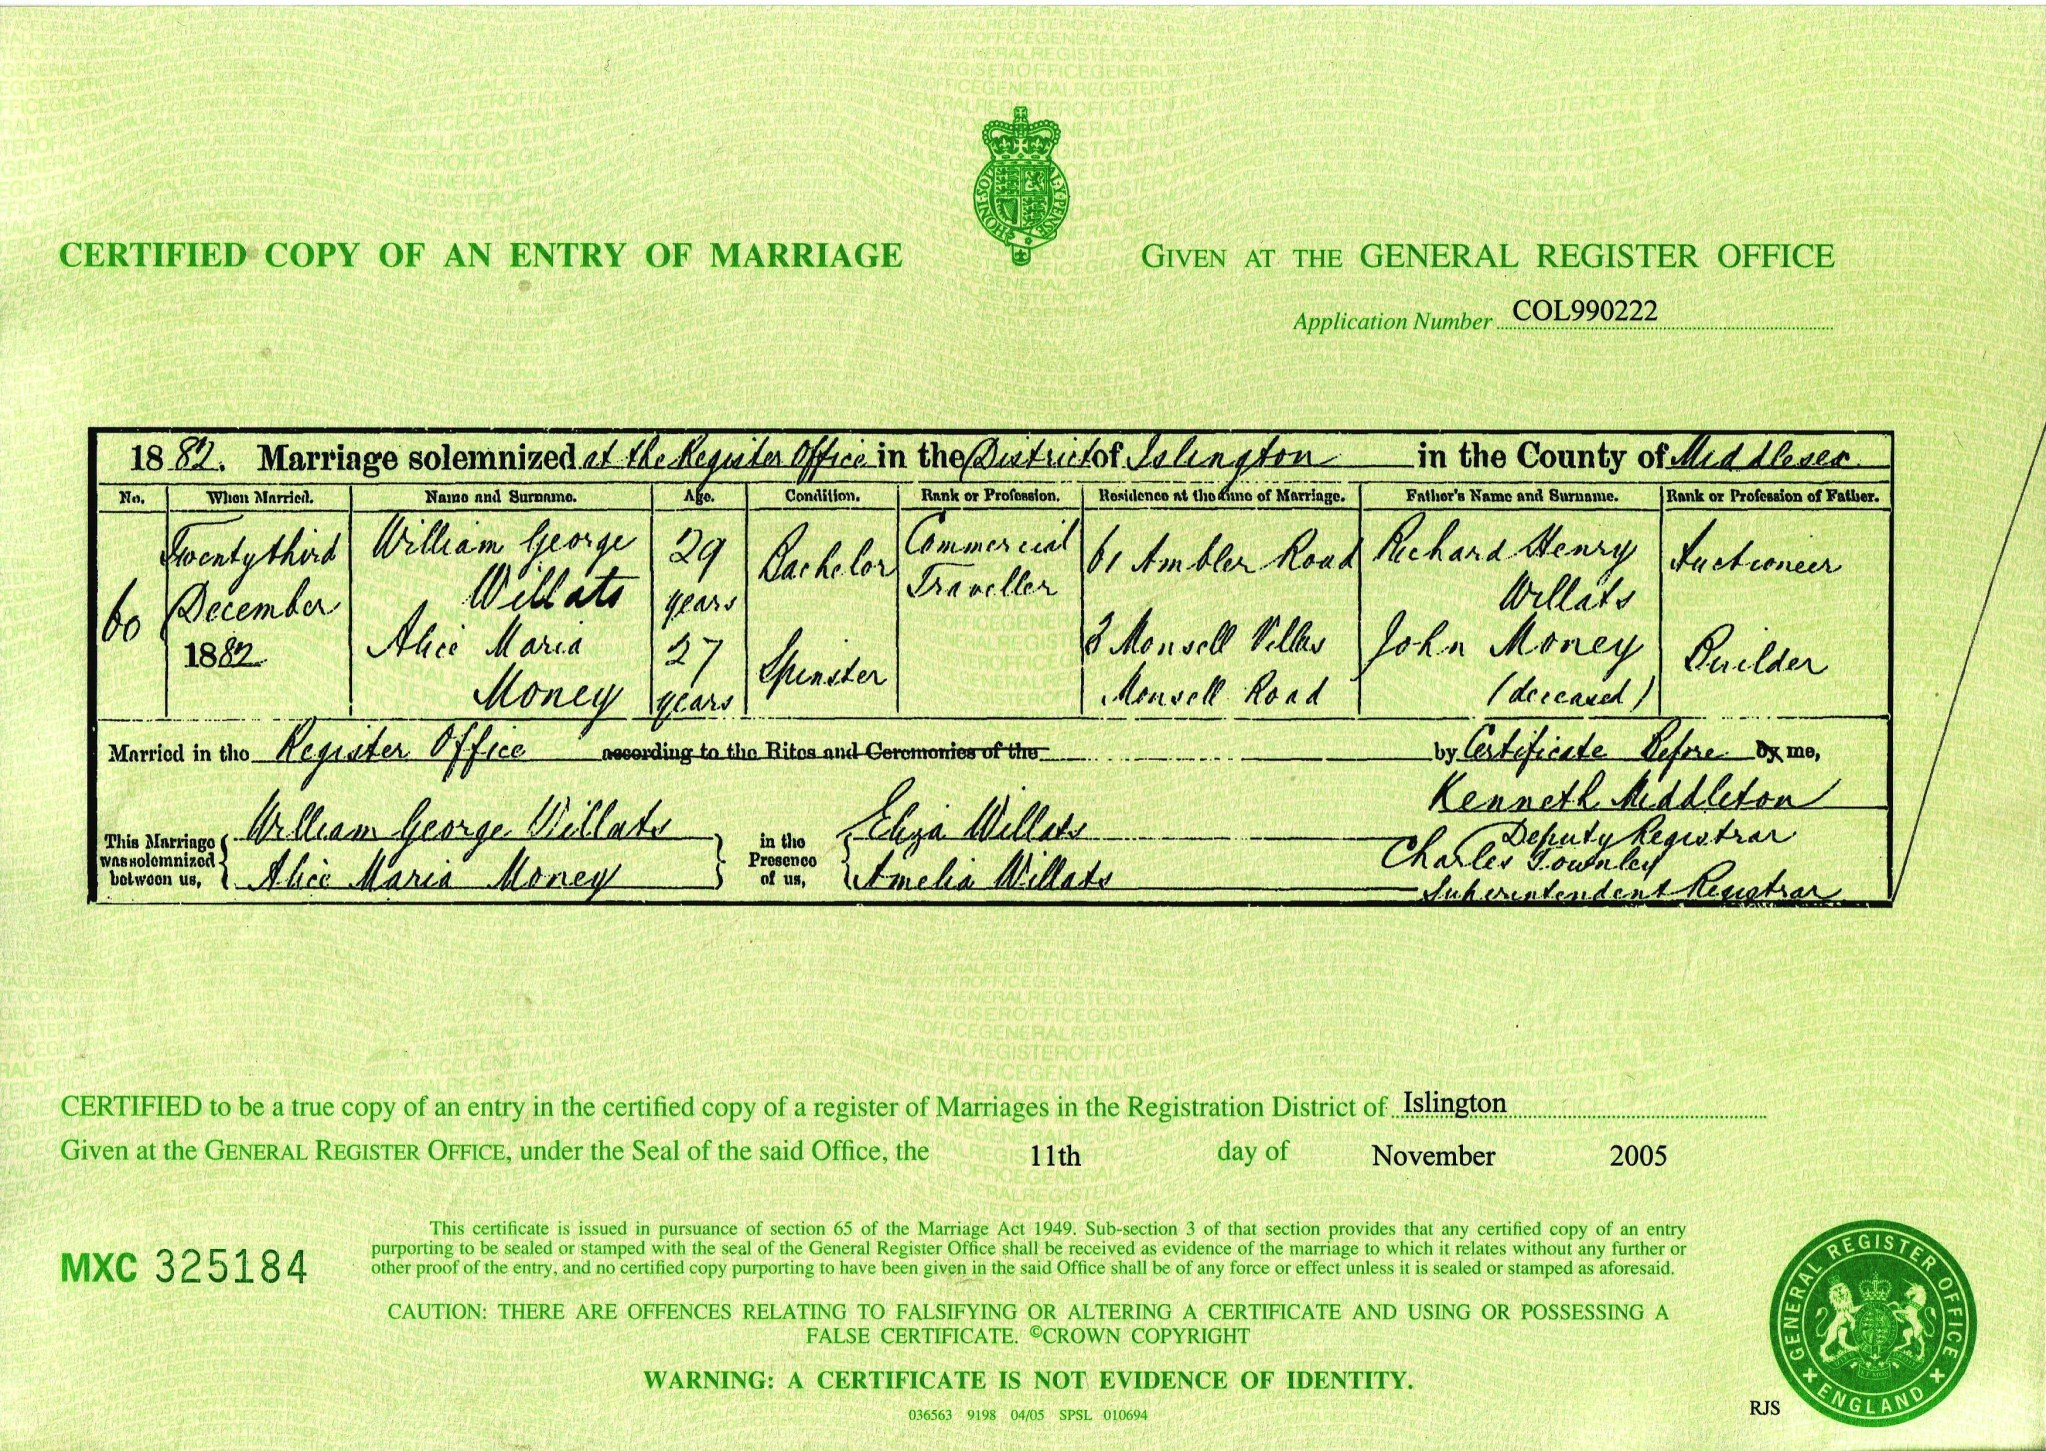 CERTIFIED COPY OF AN ENTRY OF MARRIAGE
GIVEN AT THE GENERAL REGISTER OFFICE
Application Number COL990222
1882. Marriage solemnized at the Register Office in the District of Islington in the County of Middlesex
No. When Married. Name and Surname. Age. Condition. Rank or Profession. Residence at the time of Marriage. Father's Name and Surname. Rank or Profession of Father.
60
Twenty third
December
1882
William George
Willats
29
years
Bachelor
Commercial
Traveller
61 Ambler Road
Richard Henry
Willats
Auctioneer
Alice Maria
Money
27
years
Spinster
3 Monsell Villas
Monsell Road
John Money
(deceased)
Builder
Married in the Register Office according to the Rites and Ceremonies of the by Certificate Before by me,
This Marriage
was solemnized
between us,
William George Willats
Alice Maria Money
in the
Presence
of us,
Eliza Willats
Amelia Willats
Kenneth Middleton
Deputy Registrar
Charles Townley
Superintendent Registrar
CERTIFIED to be a true copy of an entry in the certified copy of a register of Marriages in the Registration District of Islington
Given at the GENERAL REGISTER OFFICE, under the Seal of the said Office, the 11th day of November 2005
MXC 325184
This certificate is issued in pursuance of section 65 of the Marriage Act 1949. Sub-section 3 of that section provides that any certified copy of an entry
purporting to be sealed or stamped with the seal of the General Register Office shall be received as evidence of the marriage to which it relates without any further or
other proof of the entry, and no certified copy purporting to have been given in the said Office shall be of any force or effect unless it is sealed or stamped as aforesaid.
CAUTION: THERE ARE OFFENCES RELATING TO FALSIFYING OR ALTERING A CERTIFICATE AND USING OR POSSESSING A
FALSE CERTIFICATE. ©CROWN COPYRIGHT
WARNING: A CERTIFICATE IS NOT EVIDENCE OF IDENTITY.
036563 9198 04/05 SPSL 010694
RJS
GENERAL REGISTER OFFICE
ENGLAND